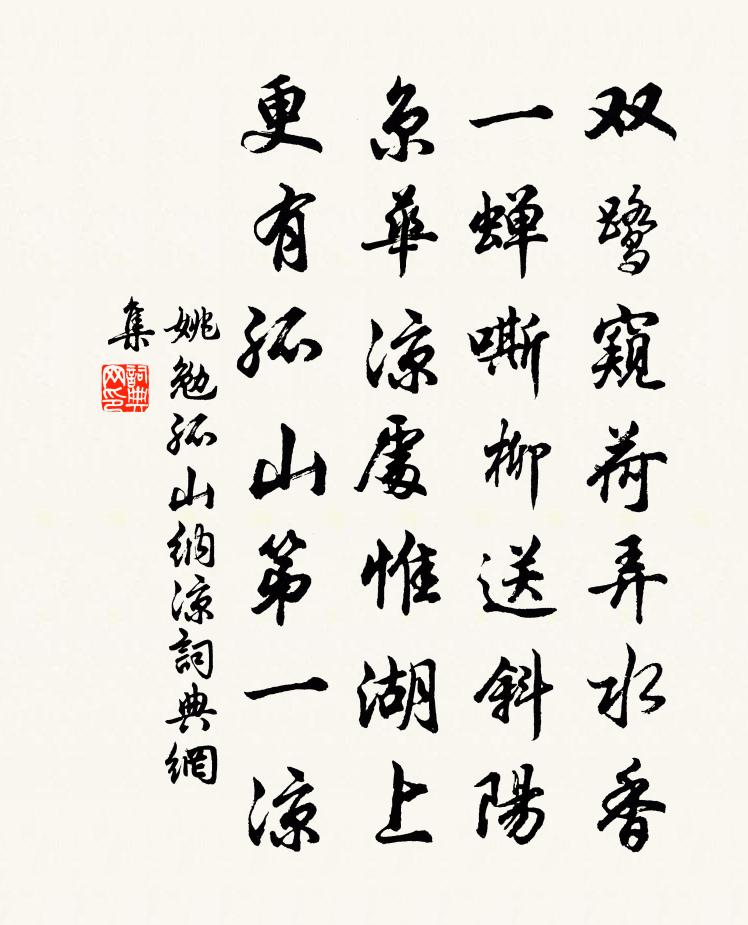 双鹭窥荷弄水香
一蝉嘶柳送斜陽
京華凉處惟湖上
更有孤山第一凉
姚勉孤山納凉詞典網
集
詞典網印